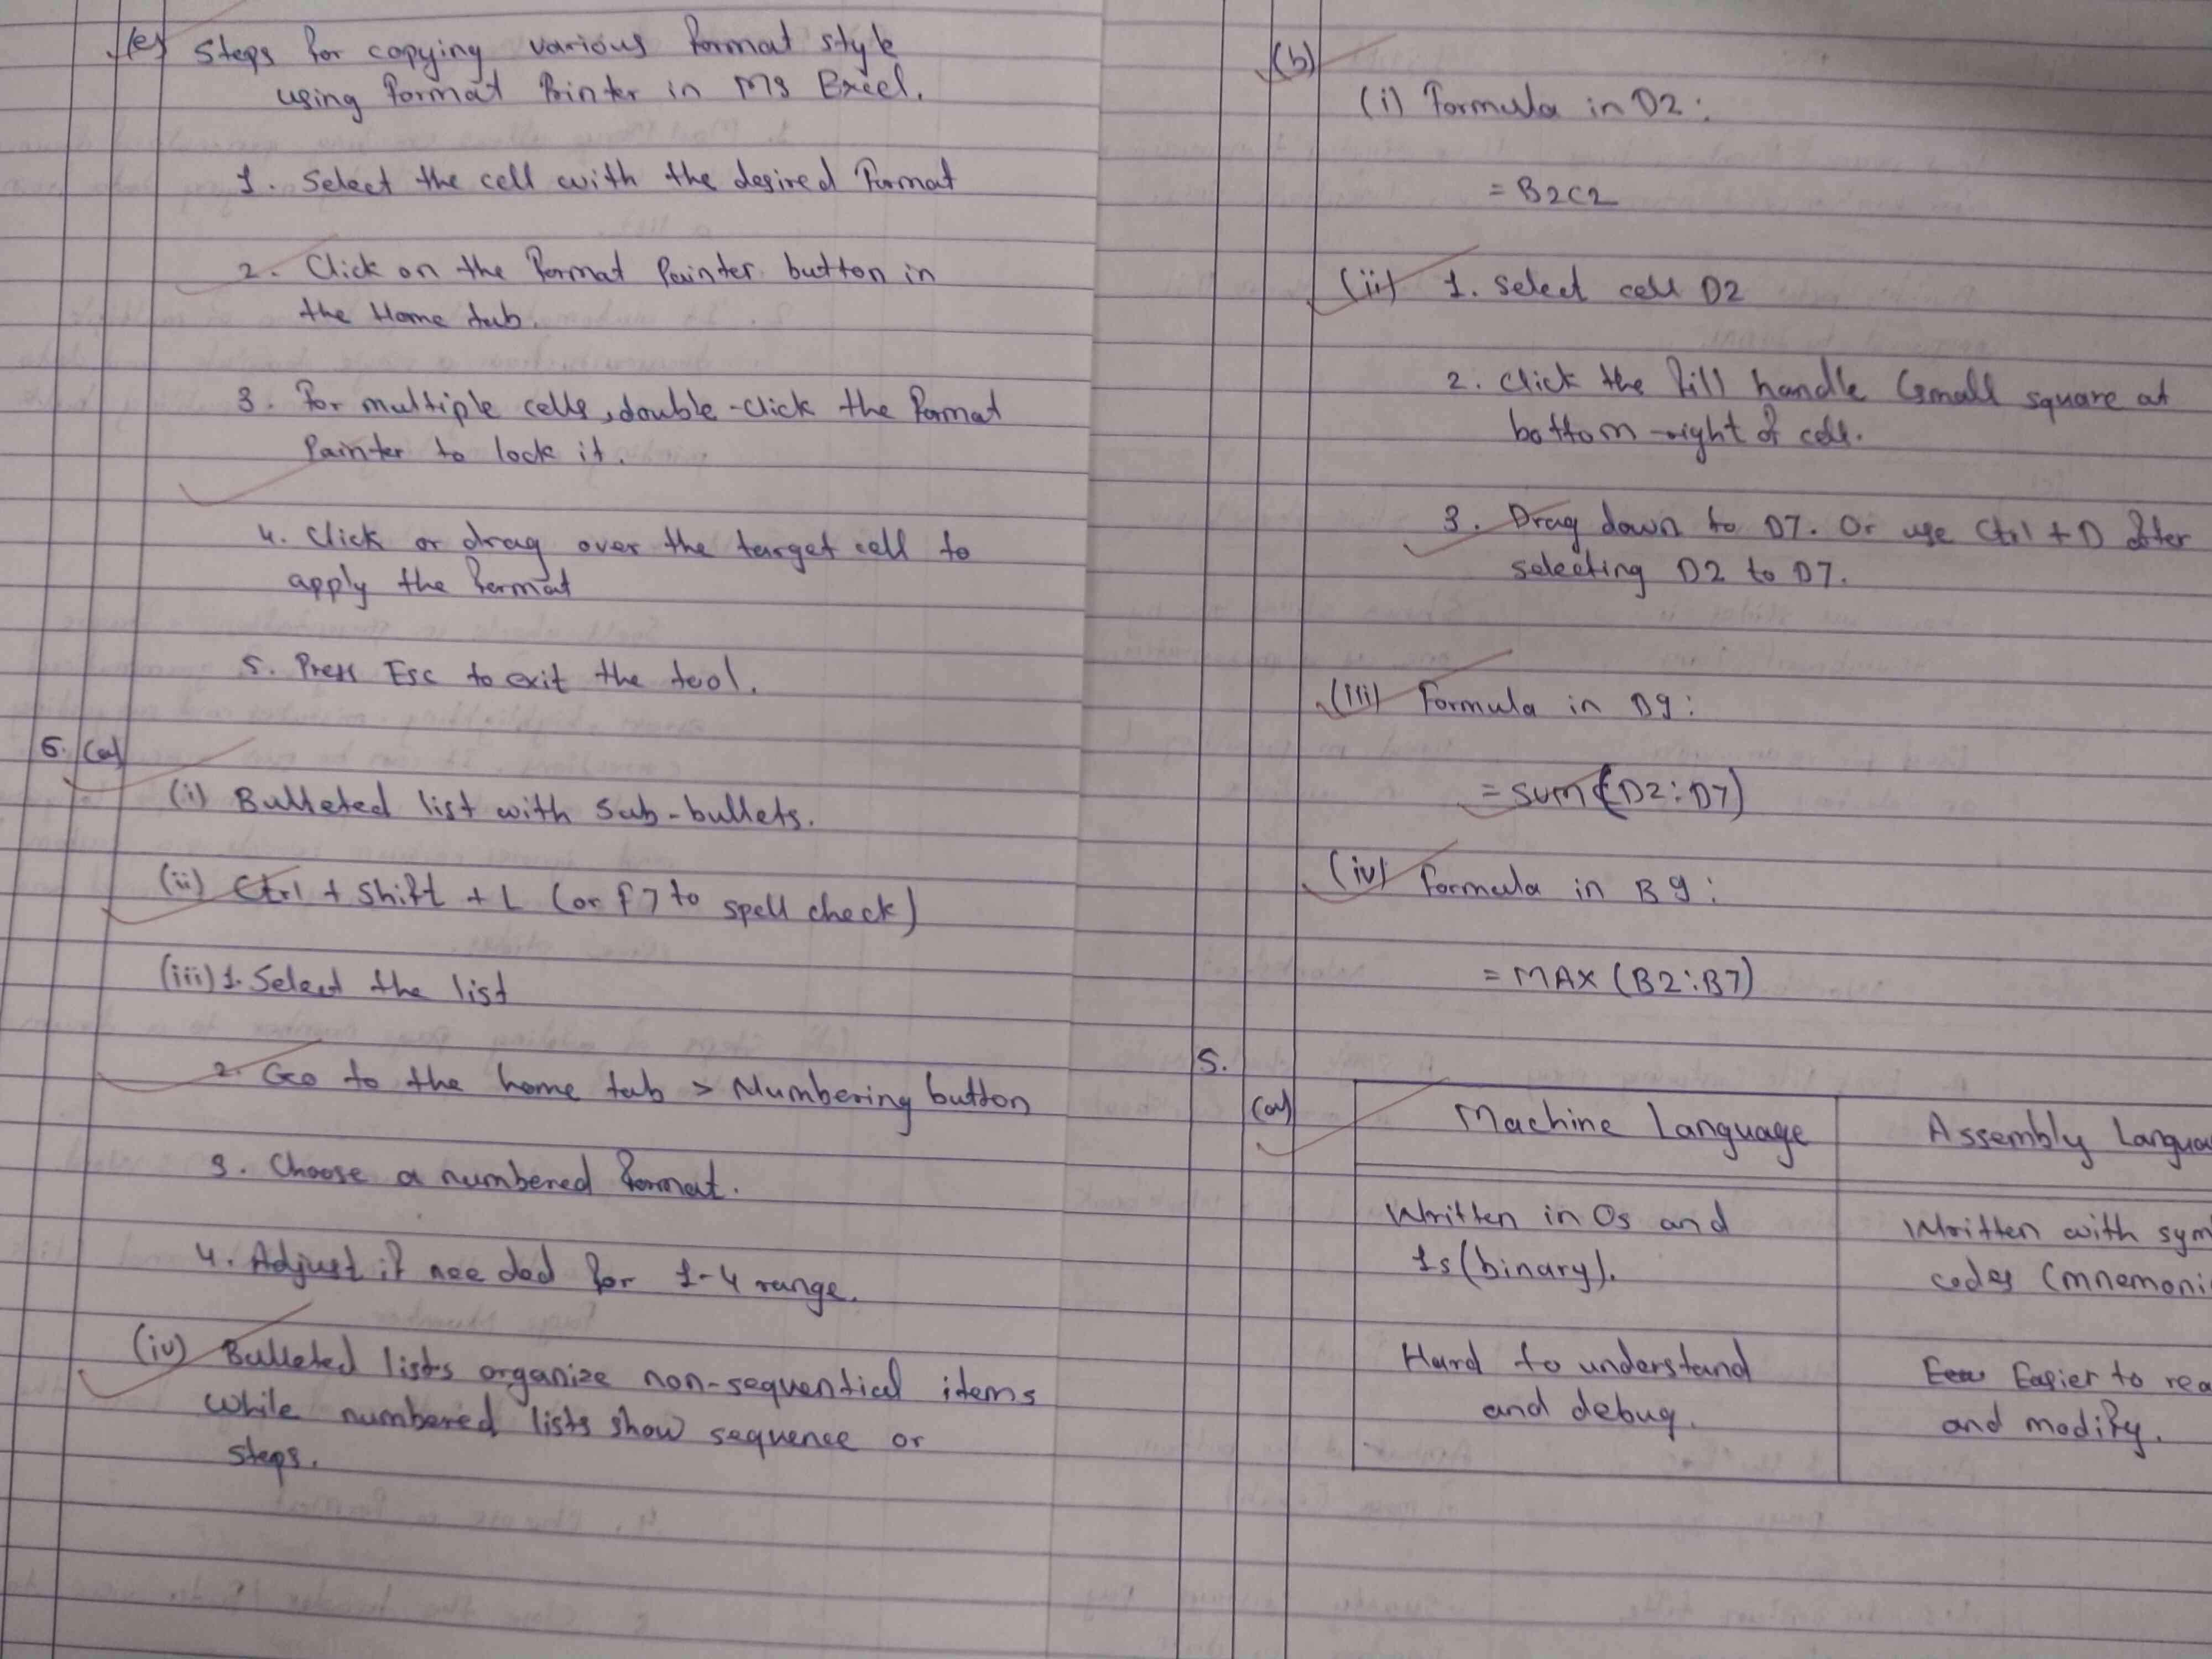 (e) Steps for copying various format style
using format Painter in MS Excel.
1. Select the cell with the desired format
2. Click on the Format Painter button in
the Home tab.
3. For multiple cells, double-click the Format
Painter to lock it.
4. Click or drag over the target cell to
apply the format
5. Press Esc to exit the tool.
6. (a)
(i) Bulleted list with Sub-bullets.
(ii) Ctrl + Shift + L (or F7 to spell check)
(iii) 1. Select the list
2. Go to the home tab > Numbering button
3. Choose a numbered format.
4. Adjust if needed for 1-4 range.
(iv) Bulleted lists organize non-sequential items
while numbered lists show sequence or
steps.
(b)
(i) Formula in D2:
= B2C2
(ii) 1. Select cell D2
2. Click the fill handle (small square at
bottom-right of cell.
3. Drag down to D7. Or use Ctrl + D after
selecting D2 to D7.
(iii) Formula in D9:
= SUM(D2:D7)
(iv) Formula in B9:
= MAX (B2:B7)
5.
(a) Machine Language Assembly Langua
Written in 0s and Written with sym
1s (binary). codes (mnemoni
Hard to understand Easier to rea
and debug. and modify.